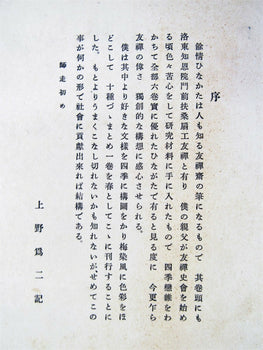 序
餘情ひなかたは人も知る友禪齋の筆になるもので 其卷頭にも
洛東知恩院門前扶桑扇工友禪と有り 僕の親父が友禪史會を始め
る頃色々苦心をして研究材料に手に入れたもので 四季戀雜をわ
かちて全部六卷實に優れたひながたで有ると見る度に 今更乍ら
友禪の偉さ 獨創的な構想に感心させられる。
僕は其中より好きな文樣を四季に構圖をかり梅染風に色彩をほ
どこして 十種づゝまとめ一卷を春としてこゝに刊行することに
した。もとよりうまくこなし切れないかも知れないが、せめてこの
事が何かの形で社會に貢獻出來れば結構である。
師走初め
上野爲二記